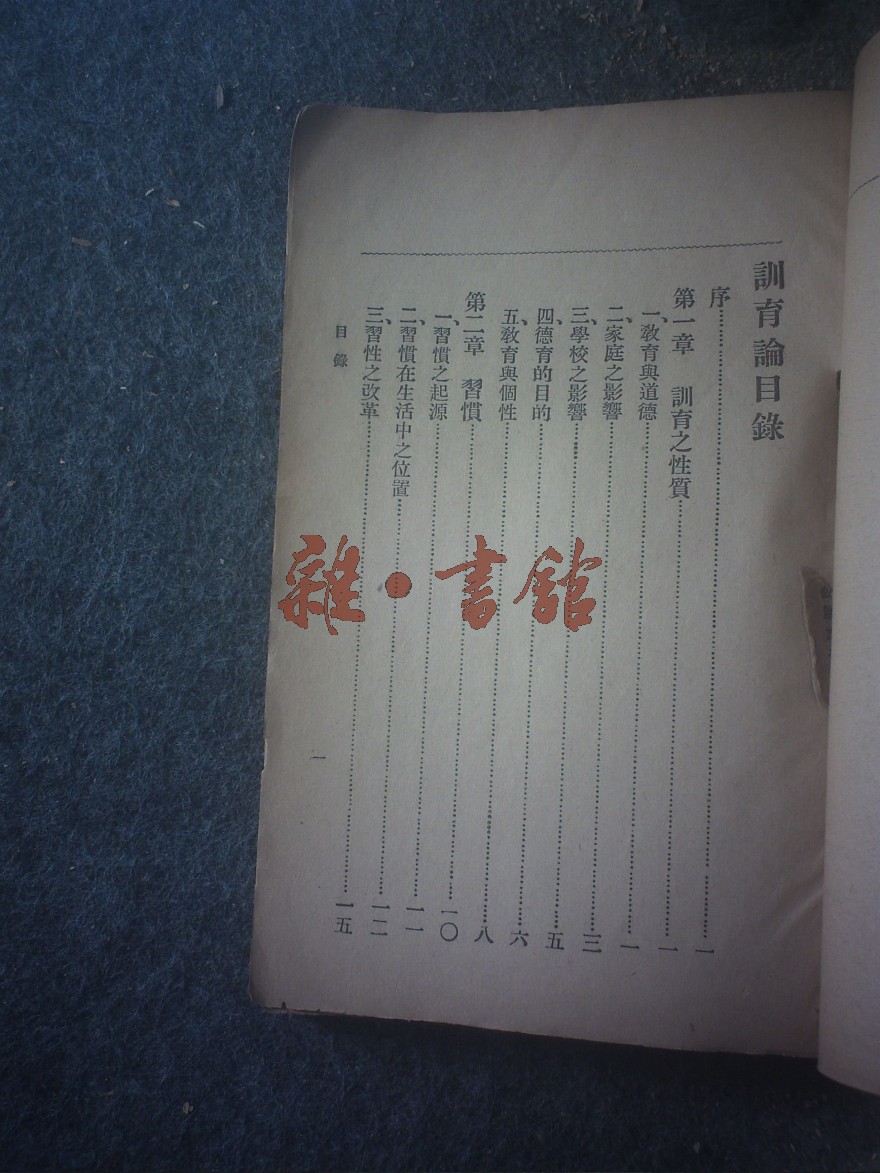 訓育論目錄
序……一
第一章　訓育之性質……一
一、教育與道德……一
二、家庭之影響……三
三、學校之影響……五
四、德育的目的……六
五、教育與個性……八
第二章　習慣……一〇
一、習慣之起源……一一
二、習慣在生活中之位置……一二
三、習性之改革……一五
目錄
一
雜·書館